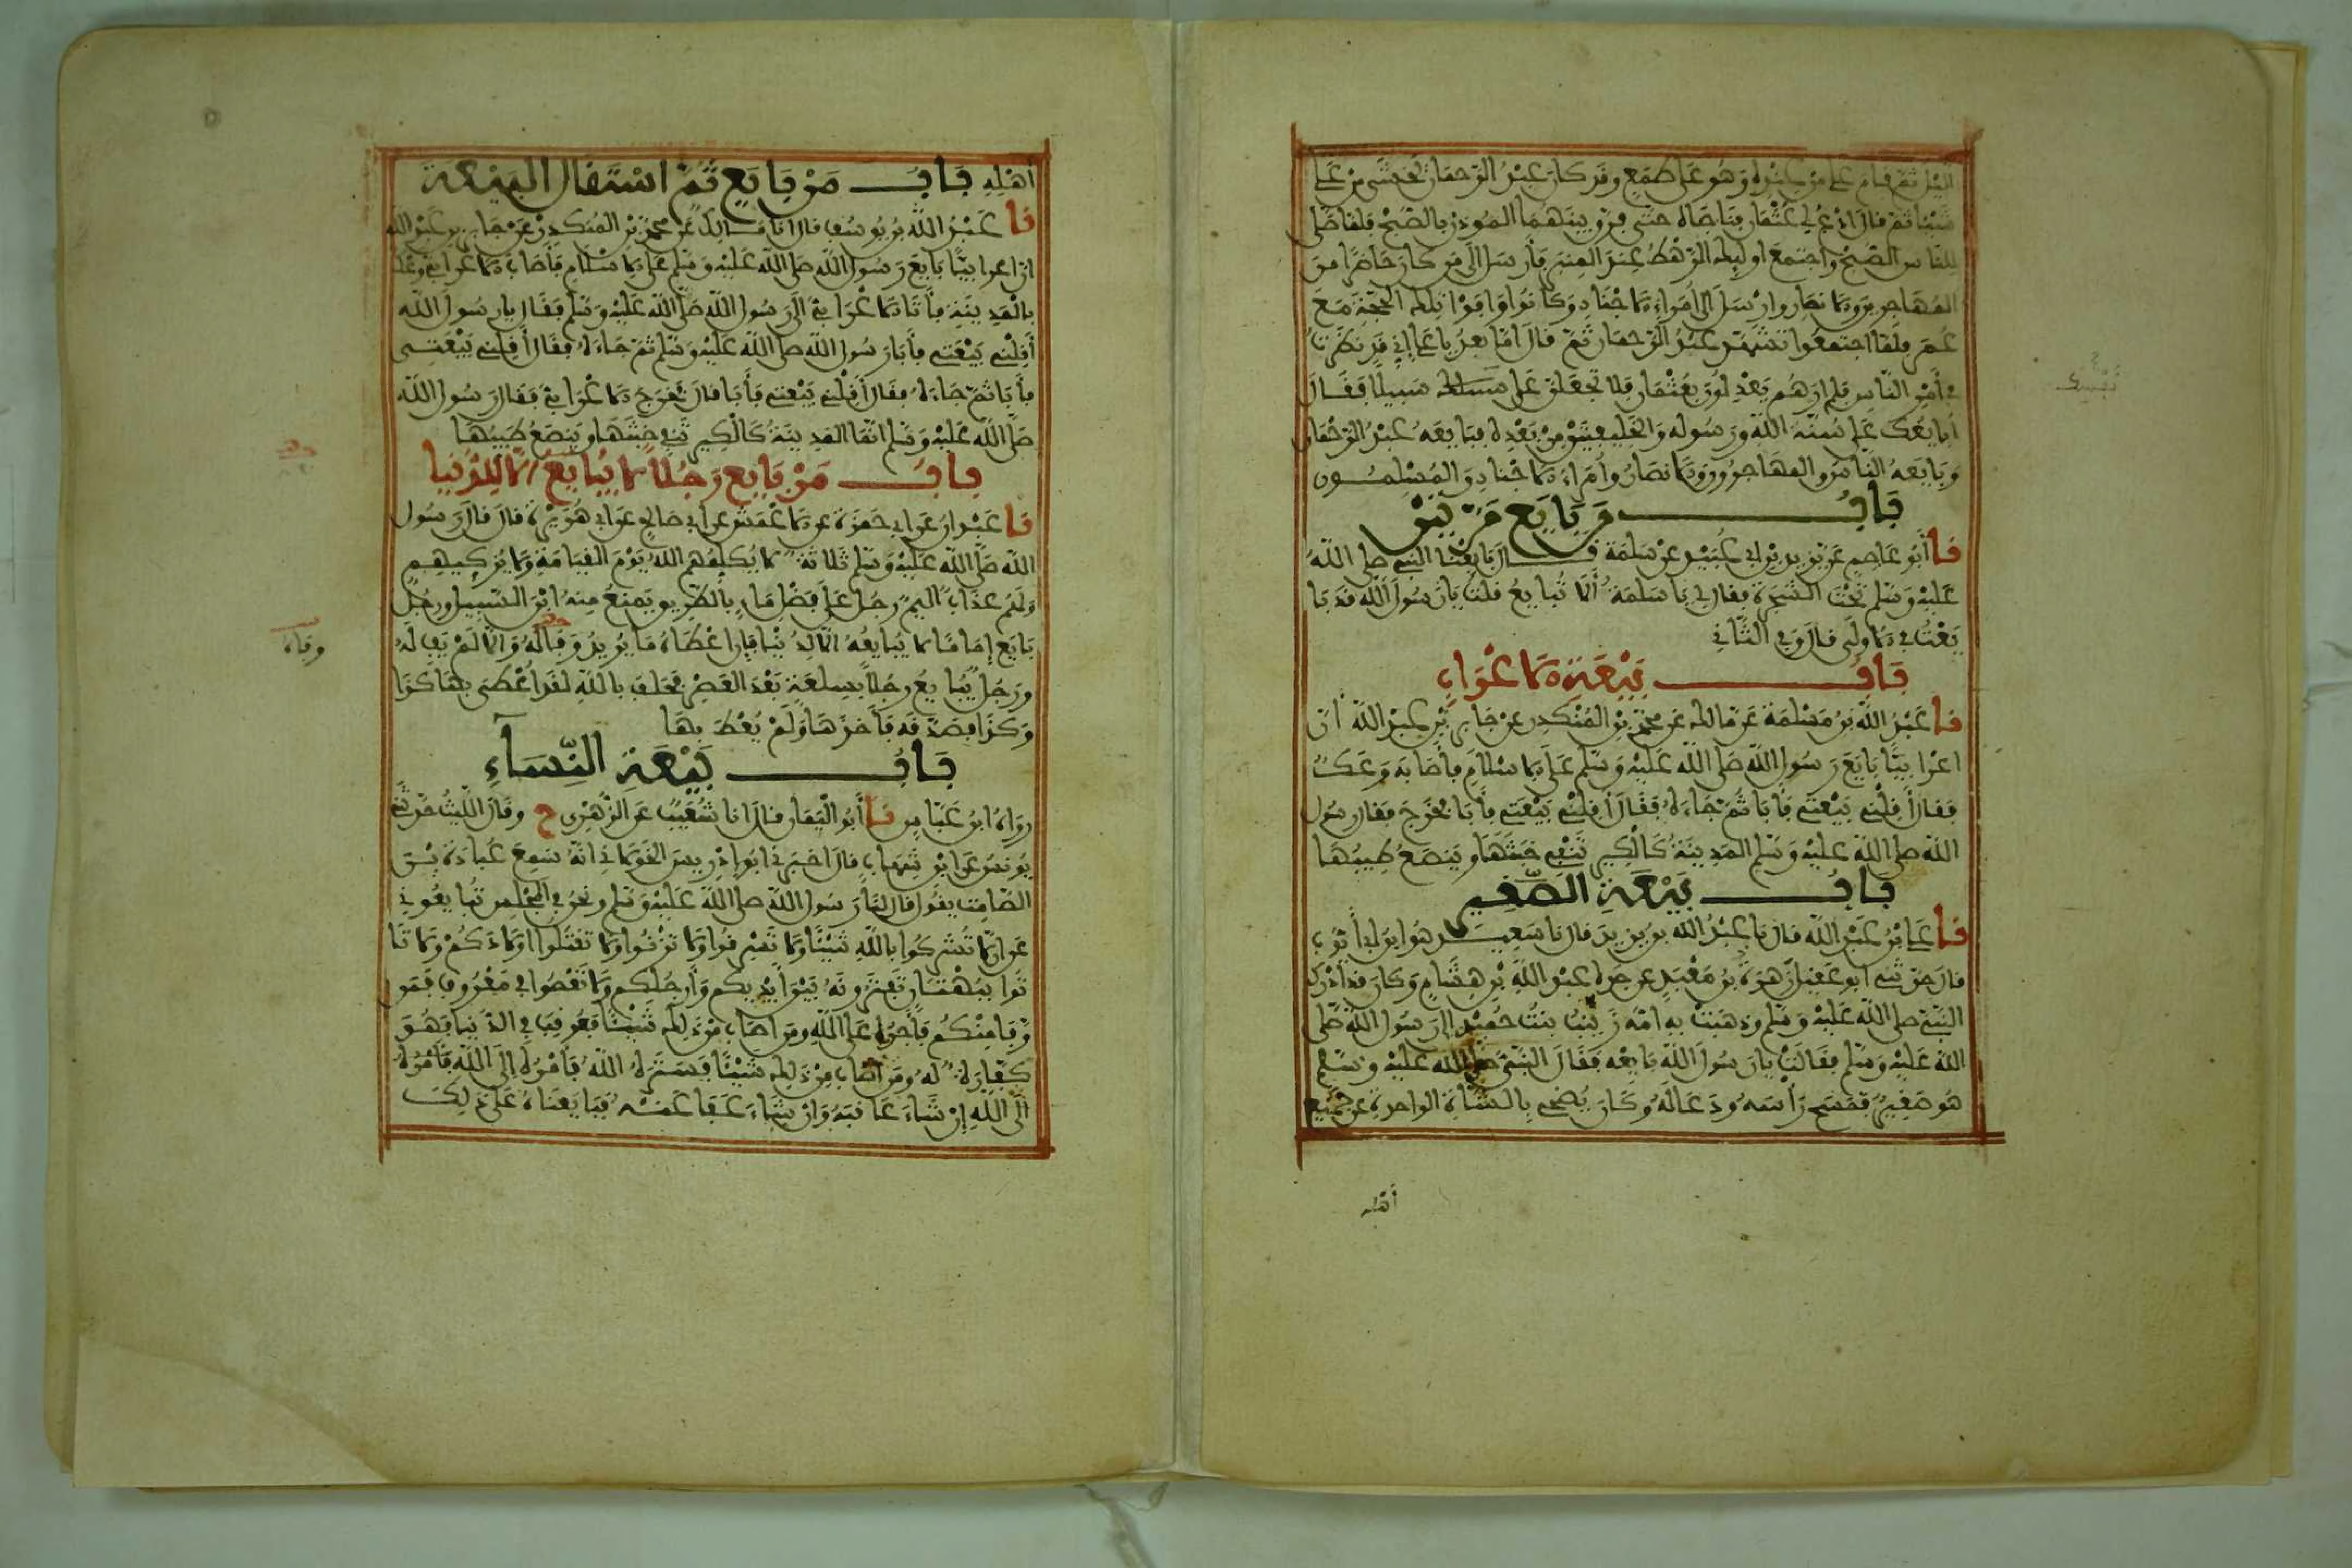 الليل ثم قام علي من عنده وهو على طمع وقد كان عبد الرحمان يخشى من علي
شيئا ثم قال ادع لي عثمان فناجاه حتى فرق بينهما الموذن بالصبح فلما صلى
للناس الصبح واجتمع اوليك الرهط عند المنبر فأرسل الى من كان حاضرا من
المهاجرين والانصار وارسل الى أمراء الاجناد وكانوا وافوا تلك الحجة مع
عمر فلما اجتمعوا تشهد عبد الرحمان ثم قال اما بعد يا علي إني قد نظرت
في أمر الناس فلم ارهم يعدلون بعثمان فلا تجعلن على نفسك سبيلا فقال
أبايعك على سنة الله ورسوله والخليفتين من بعده فبايعه عبد الرحمان
وبايعه الناس والمهاجرون والانصار وأمراء الاجناد والمسلمون
باب من بايع مرتين
نا أبو عاصم عن يزيد بن ابي عبيد عن سلمة قال بايعنا النبي صلى الله
عليه وسلم تحت الشجرة فقال لي يا سلمة ألا تبايع قلت يا رسول الله قد با
يعت في الاولى قال وفي الثاني
باب بيعة الاعراب
نا عبد الله بن مسلمة عن مالك عن محمد بن المنكدر عن جابر بن عبد الله أن
اعرابيا بايع رسول الله صلى الله عليه وسلم على الاسلام فأصابه وعك
فقال أقلني بيعتي فأبا ثم جاءه فقال أقلني بيعتي فأبا فخرج فقال رسول
الله صلى الله عليه وسلم المدينة كالكير تنفي خبثها وينصع طيبها
باب بيعة الصغير
نا علي بن عبد الله قال نا عبد الله بن يزيد قال نا سعيد هو ابن أبي أيوب
قال حدثني ابو عقيل زهرة بن معبد عن جده عبد الله بن هشام وكان قد أدرك
النبي صلى الله عليه وسلم وذهبت به امه زينب بنت حميد إلى رسول الله صلى
الله عليه وسلم فقالت يا رسول الله بايعه فقال النبي صلى الله عليه وسلم
هو صغير فمسح رأسه ودعا له وكان يضحي بالشاة الواحدة عن جميع
أهله
أهله باب من بايع ثم استقال البيعة
نا عبد الله بن يوسف قال انا مالك عن محمد بن المنكدر عن جابر بن عبد الله
ان اعرابيا بايع رسول الله صلى الله عليه وسلم على الاسلام فأصاب الاعرابي وعك
بالمدينة فأتا الاعرابي الى رسول الله صلى الله عليه وسلم فقال يا رسول الله
أقلني بيعتي فأبا رسول الله صلى الله عليه وسلم ثم جاءه فقال أقلني بيعتي
فأبا ثم جاءه فقال أقلني بيعتي فأبا قال فخرج الاعرابي فقال رسول الله
صلى الله عليه وسلم انما المدينة كالكير تنفي خبثها وينصع طيبها
باب من بايع رجلا لا يبايع إلا للدنيا
نا عبدان عن ابي حمزة عن الاعمش عن ابي صالح عن ابي هريرة قال قال رسول
الله صلى الله عليه وسلم ثلاثة لا يكلمهم الله يوم القيامة ولا يزكيهم
ولهم عذاب اليم رجل على فضل ماء بالطريق يمنع منه ابن السبيل ورجل
بايع إماما لا يبايعه الا لدنيا فإن اعطاه ما يريد وفا له والا لم يف له
ورجل يبايع رجلا بسلعة بعد العصر فحلف بالله لقد أعطى بها كذا
وكذا فصدقه فأخذها ولم يعط بها
وفاء
باب بيعة النساء
رواه ابن عباس نا أبو اليمان قال انا شعيب عن الزهري ح وقال الليث حدثني
يونس عن ابن شهاب قال اخبرني ابو إدريس الخولاني انه سمع عبادة بن
الصامت يقول قال لنا رسول الله صلى الله عليه وسلم ونحن في المجلس تبايعوني
على ألا تشركوا بالله شيئا ولا تسرقوا ولا تزنوا ولا تقتلوا اولادكم ولا تا
توا ببهتان تفترونه بين أيديكم وأرجلكم ولا تعصوا في معروف فمن
وفا منكم فأجره على الله ومن اصاب من ذلك شيئا فعوقب في الدنيا فهو
كفارة له ومن اصاب من ذلك شيئا فستره الله فأمره إلى الله فأمره
الى الله إن شاء عاقبه وان شاء عفا عنه فبايعناه على ذلك